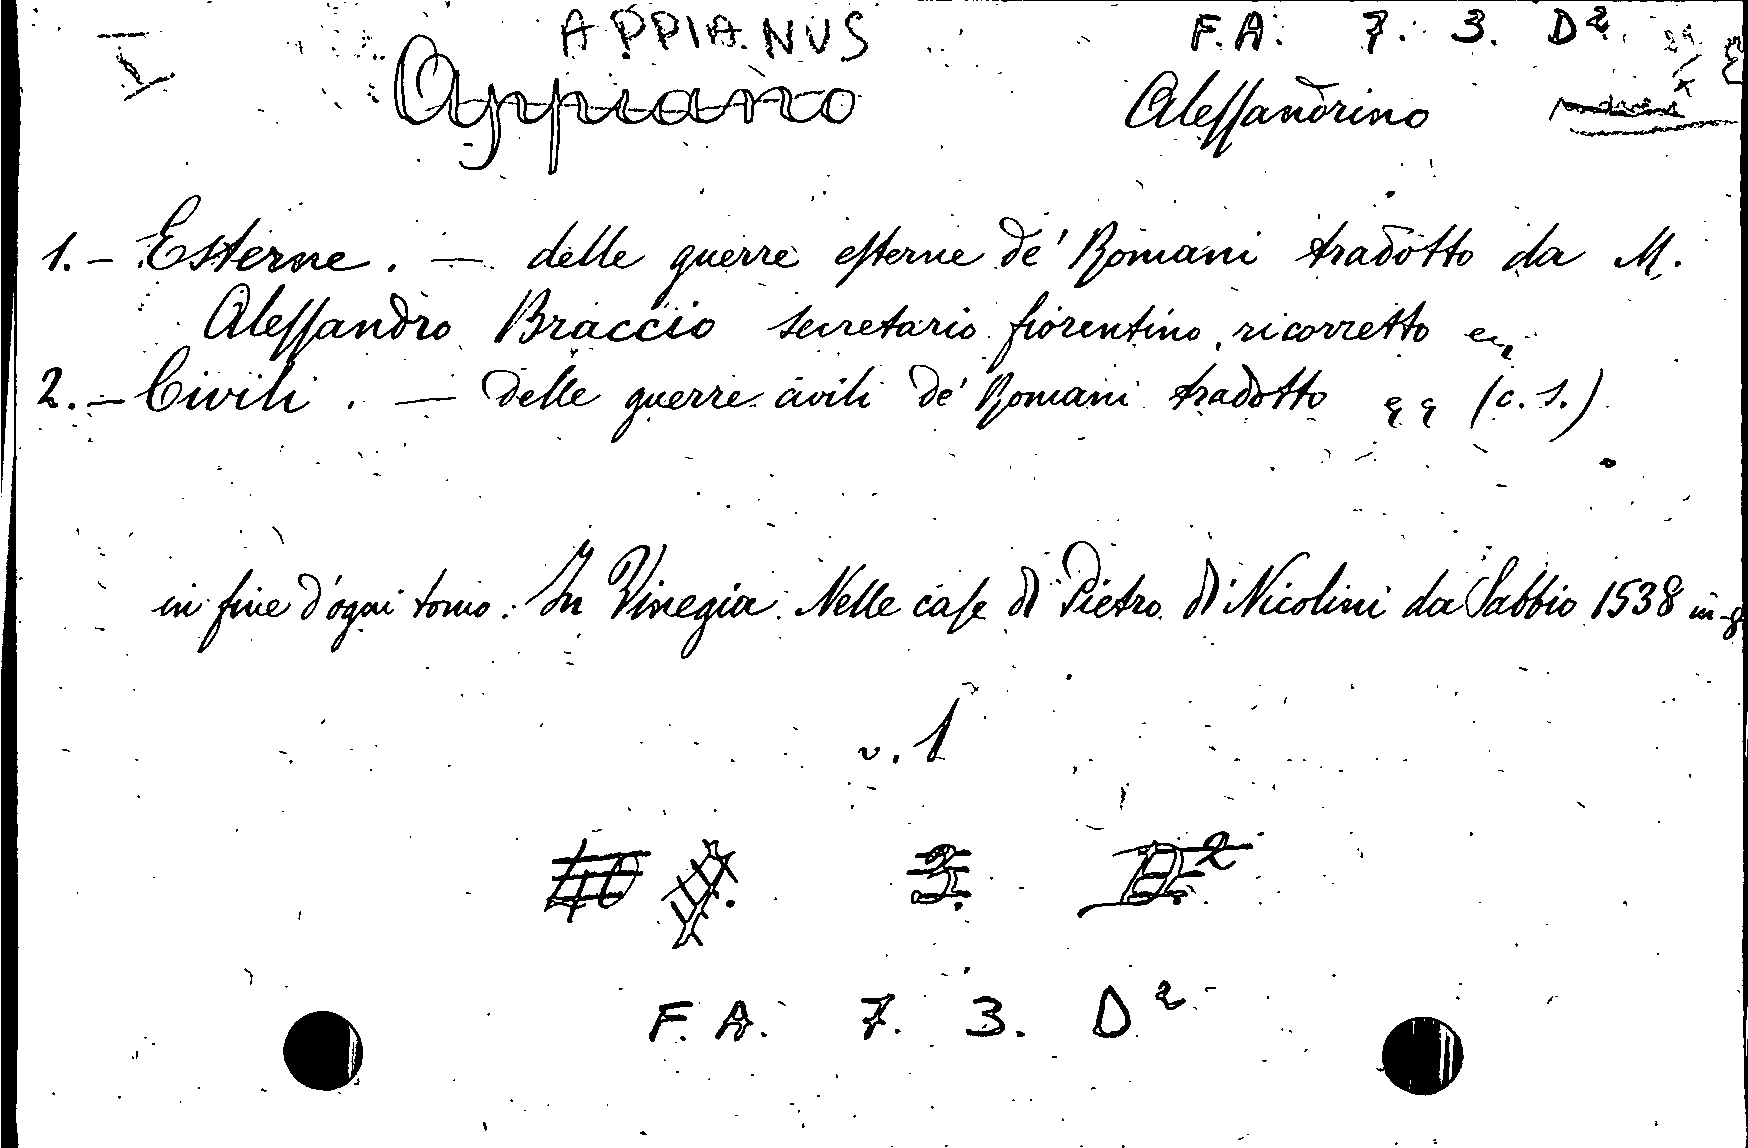 APPIANUS F.A. 7. 3. D²
Appiano Alessandrino
1. - Esterne. — delle guerre esterne de' Romani tradotto da M.
Alessandro Braccio secretario fiorentino, ricorretto
2. - Civili. — delle guerre civili de' Romani tradotto (c. s.)
in fine d'ogni tomo: In Vinegia. Nelle case di Pietro di Nicolini da Sabbio 1538 in-8
v. 1
3. D²
F. A. 7. 3. D²